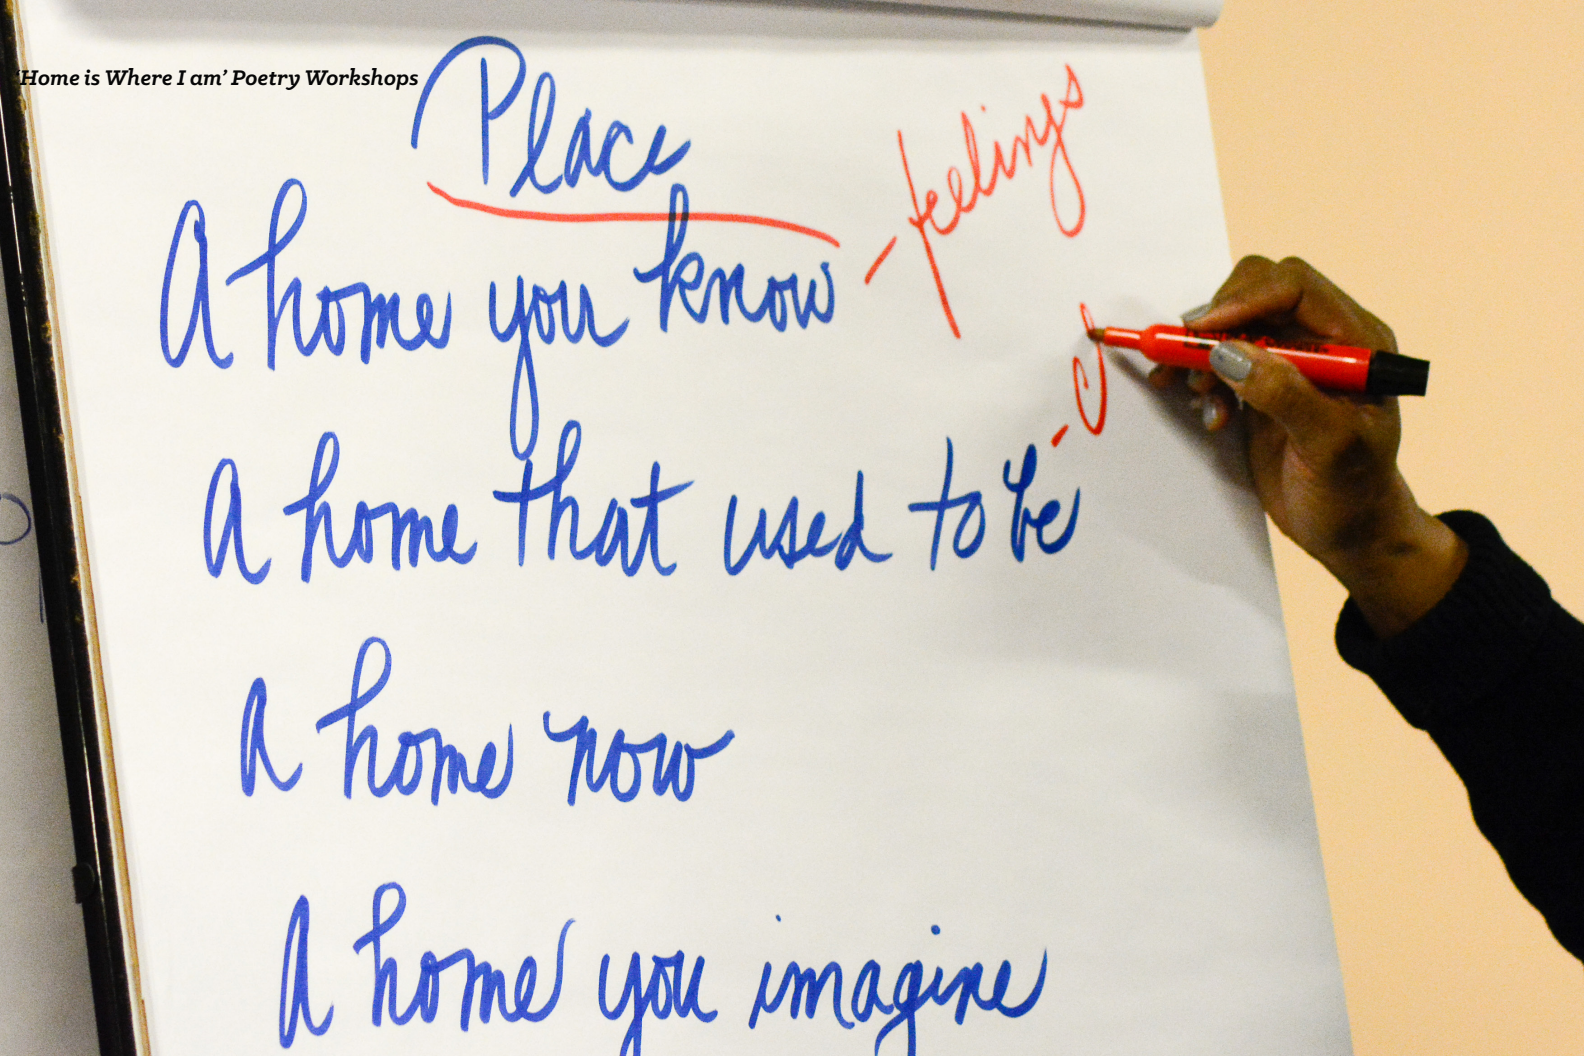 ‘Home is Where I am’ Poetry Workshops
Place
- feelings
A home you know
A home that used to be -
A home now
A home you imagine